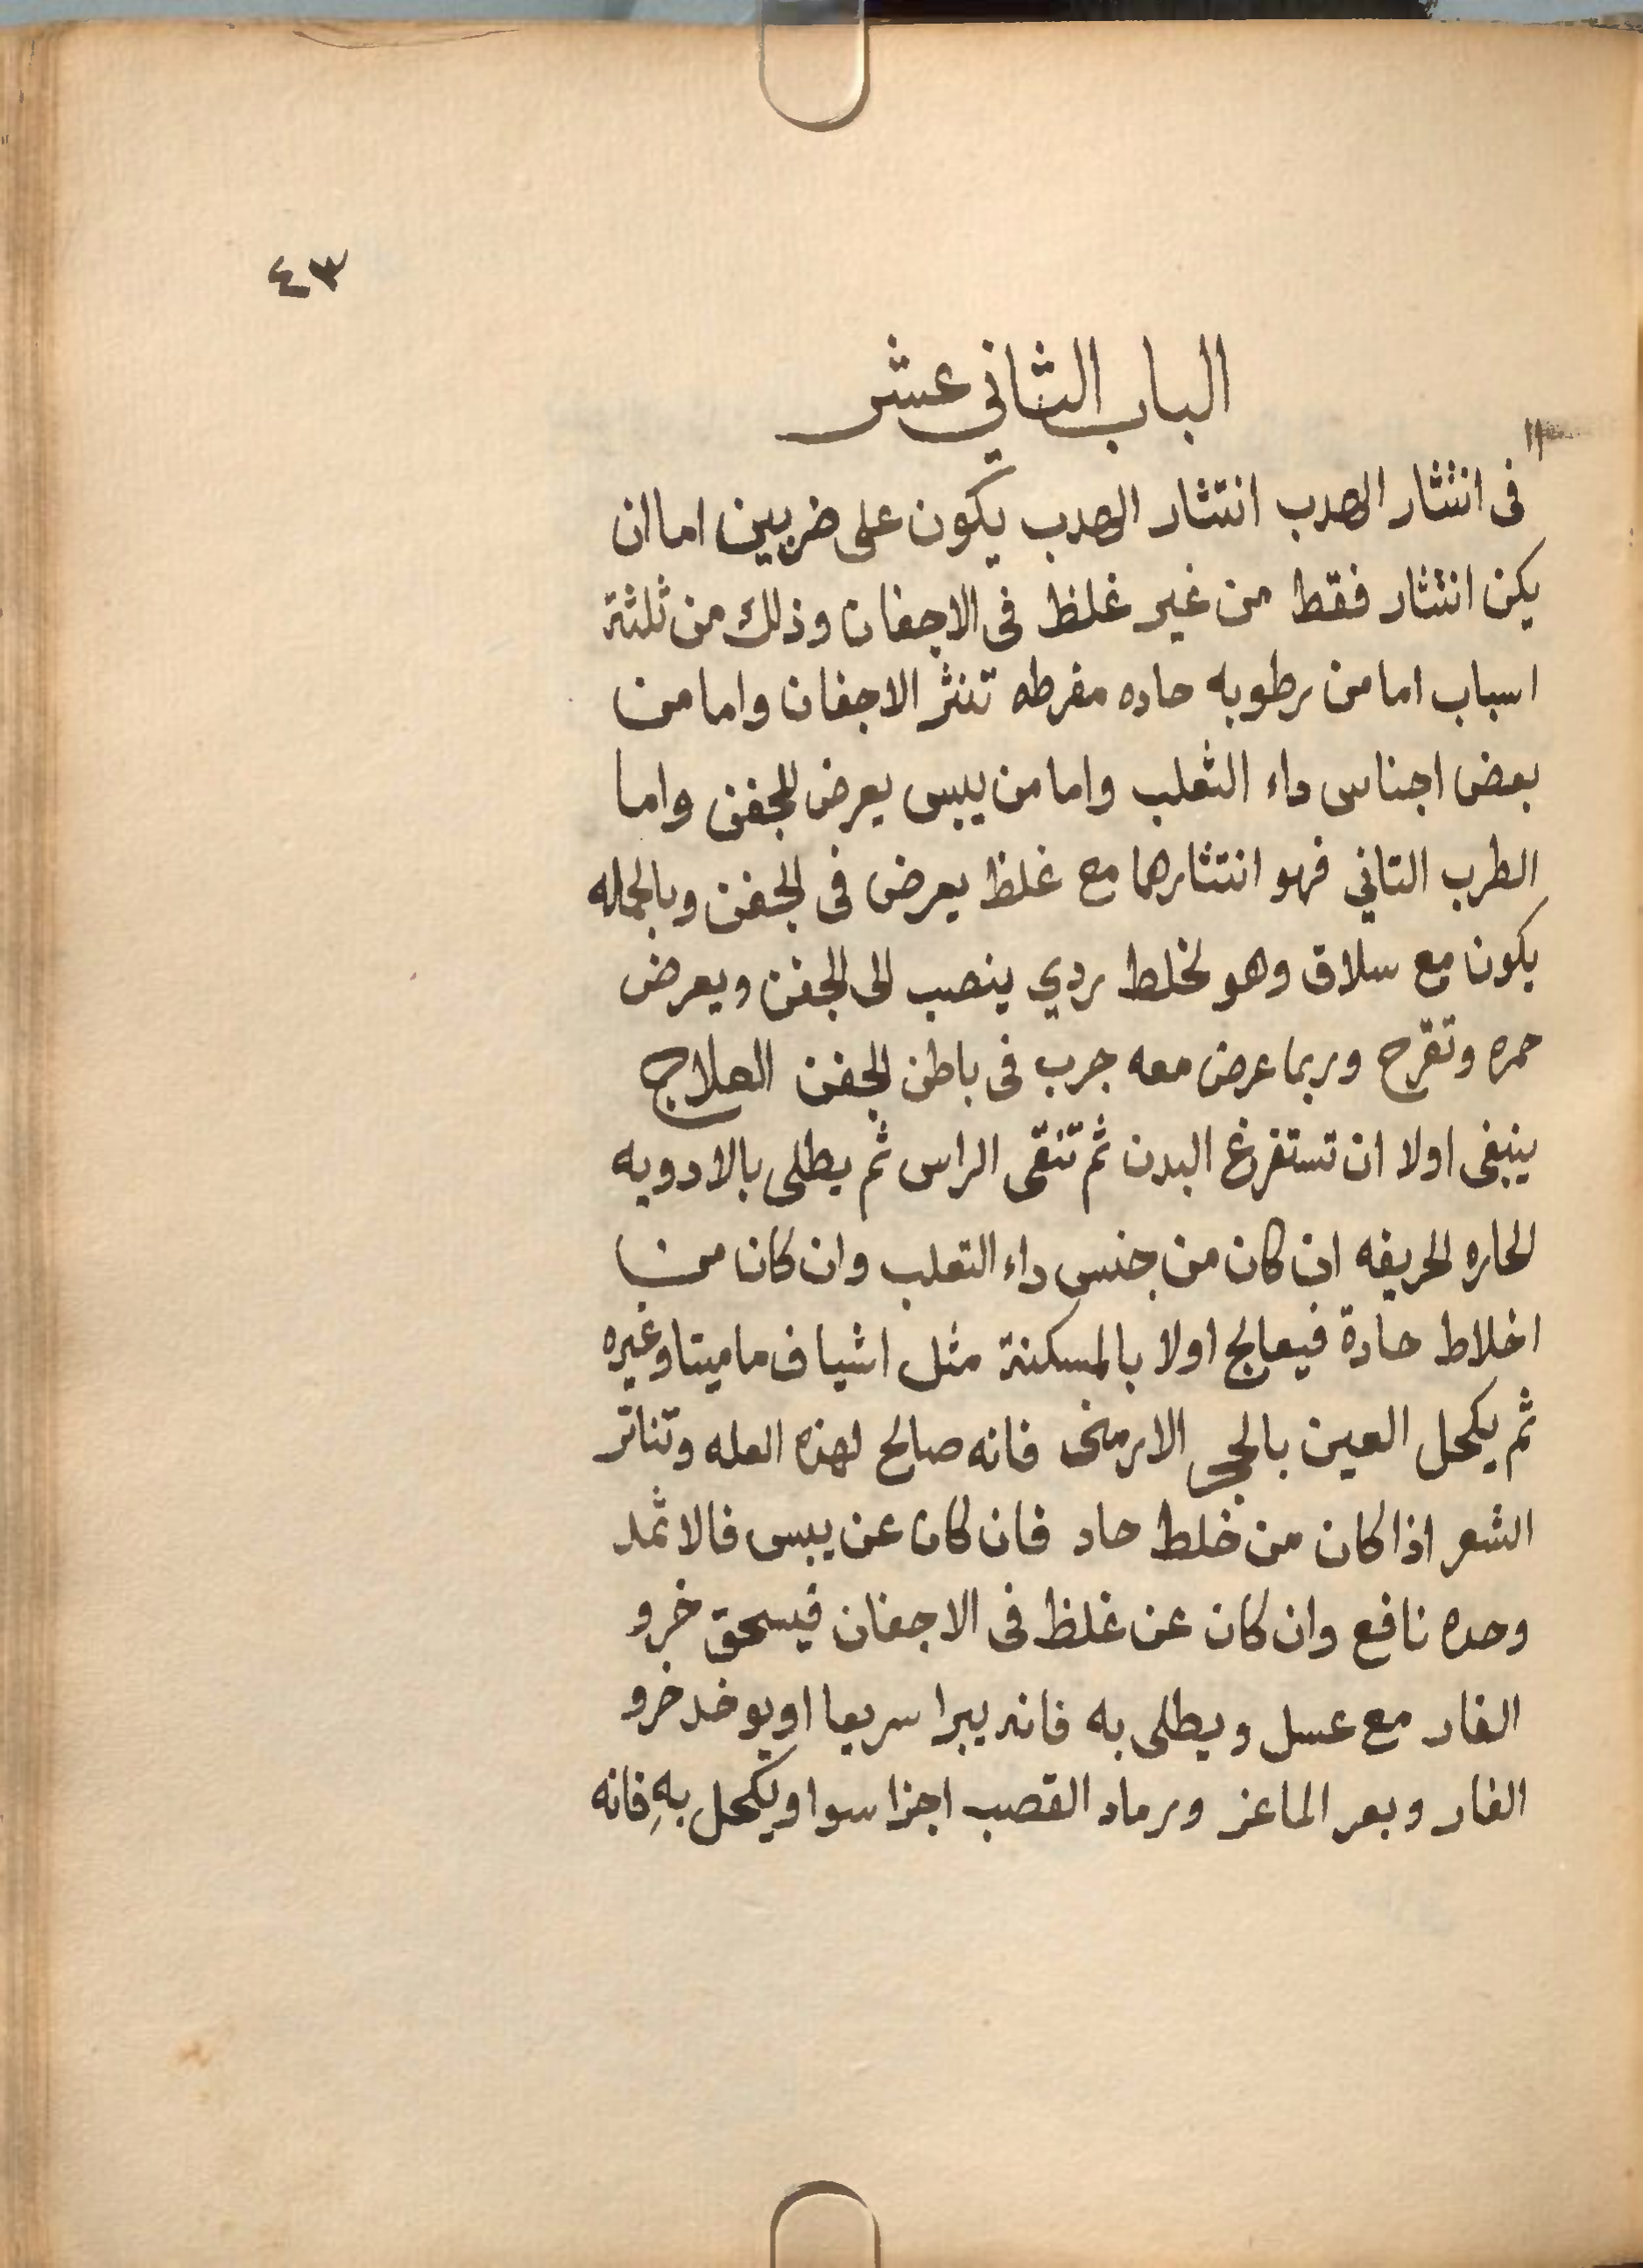 ٤٣
الباب الثاني عشر
في انتثار الهدب انتثار الهدب يكون على ضربين اما ان
يكن انتثار فقط من غير غلظ في الاجفان وذلك من ثلثة
اسباب اما من رطوبه حاده مفرطه تنثر الاجفان واما من
بعض اجناس داء الثعلب واما من يبس يعرض للجفن واما
الطرب التاني فهو انتثارها مع غلظ يعرض في الجفن وبالجمله
يكون مع سلاق وهو لخلط ردي ينصب الى الجفن ويعرض
حمره وتقرح وربما عرض معه جرب في باطن الجفن العلاج
ينبغى اولا ان تستفرغ البدن ثم تنقى الراس ثم يطلى بالادويه
الحاره الحريفه ان كان من جنس داء التعلب وان كان من
اخلاط حادة فيعالج اولا بالمسكنة مثل اشياف ماميتا وغيره
ثم يكحل العين بالحجر الارمنى فانه صالح لهذه العله وتناتر
الشعر اذا كان من خلط حاد فان كان عن يبس فالاثمد
وحده نافع وان كان عن غلظ في الاجفان فيسحق خرو
الفار مع عسل ويطلى به فانه يبرا سريعا او يوخد خرو
الفار وبعر الماعز ورماد القصب اجزا سوا ويكحل بهِ فانه